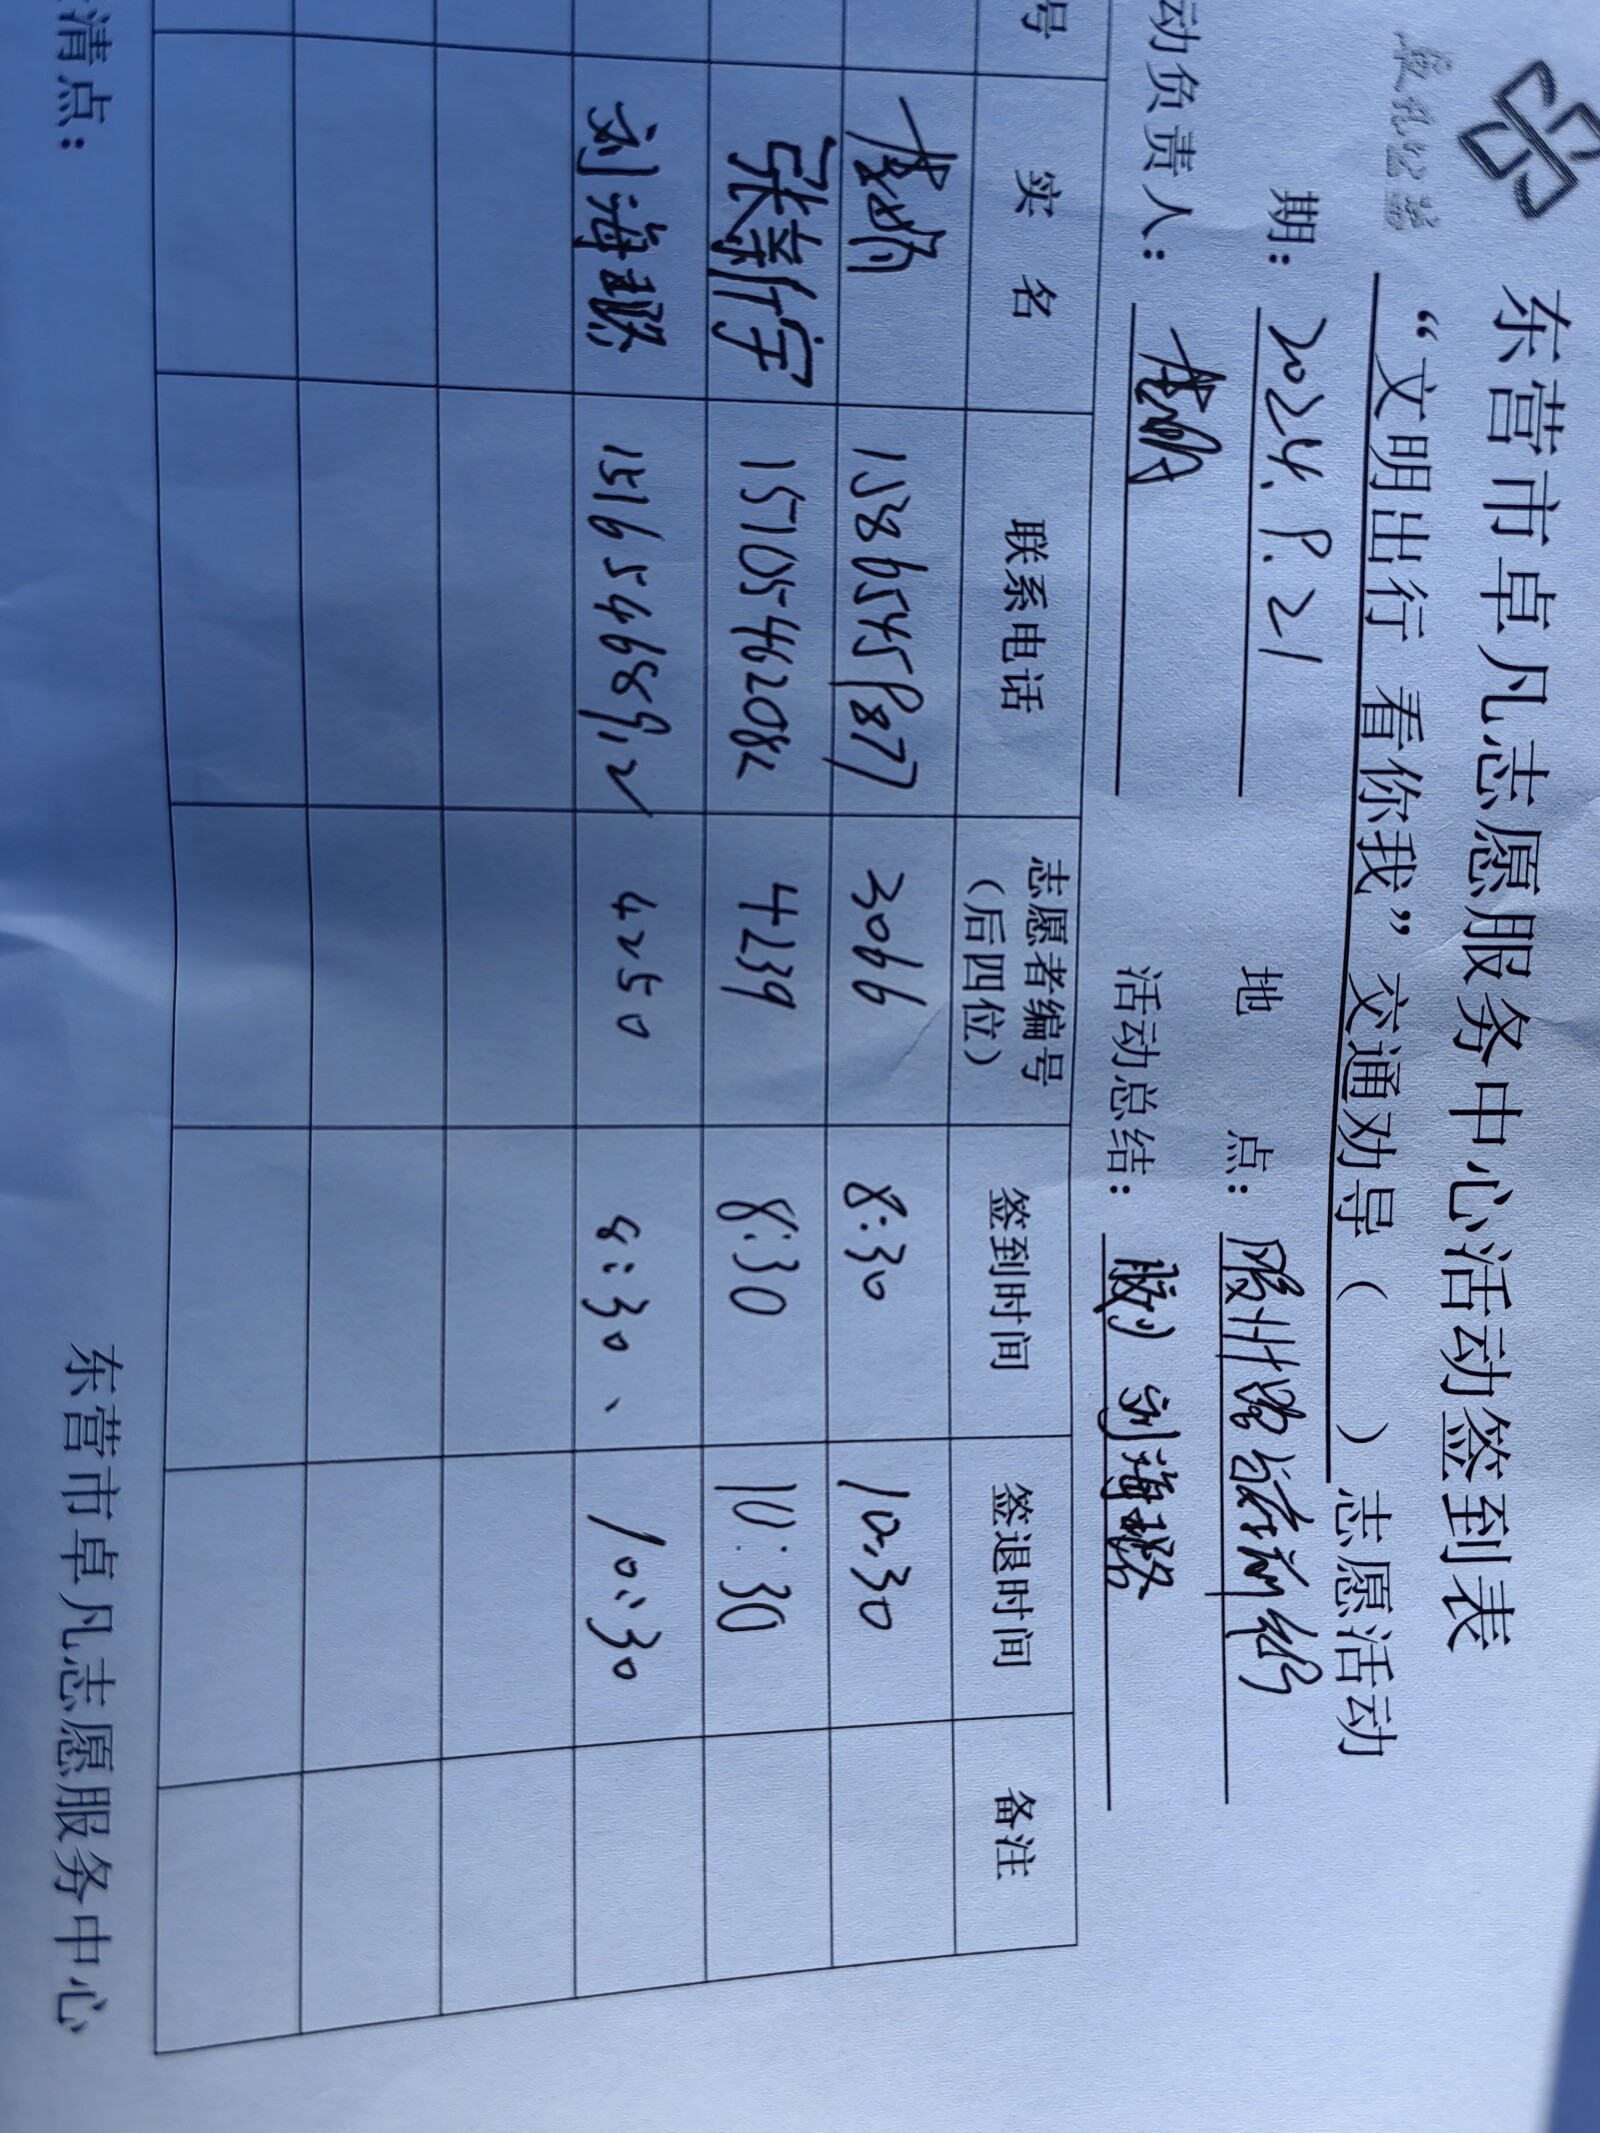 东营市卓凡志愿服务中心活动签到表
“文明出行 看你我” 交通劝导（ ）志愿活动
期： 2024.9.21 地 点： 胶州路
动负责人： 活动总结： 刘海璐
号 实 名 联系电话 志愿者编号（后四位） 签到时间 签退时间 备注
15865459877 3066 8:30 10:30
张新宇 15710546208 4239 8:30 10:30
刘海璐 4250 8:30 10:30
清点：
东营市卓凡志愿服务中心